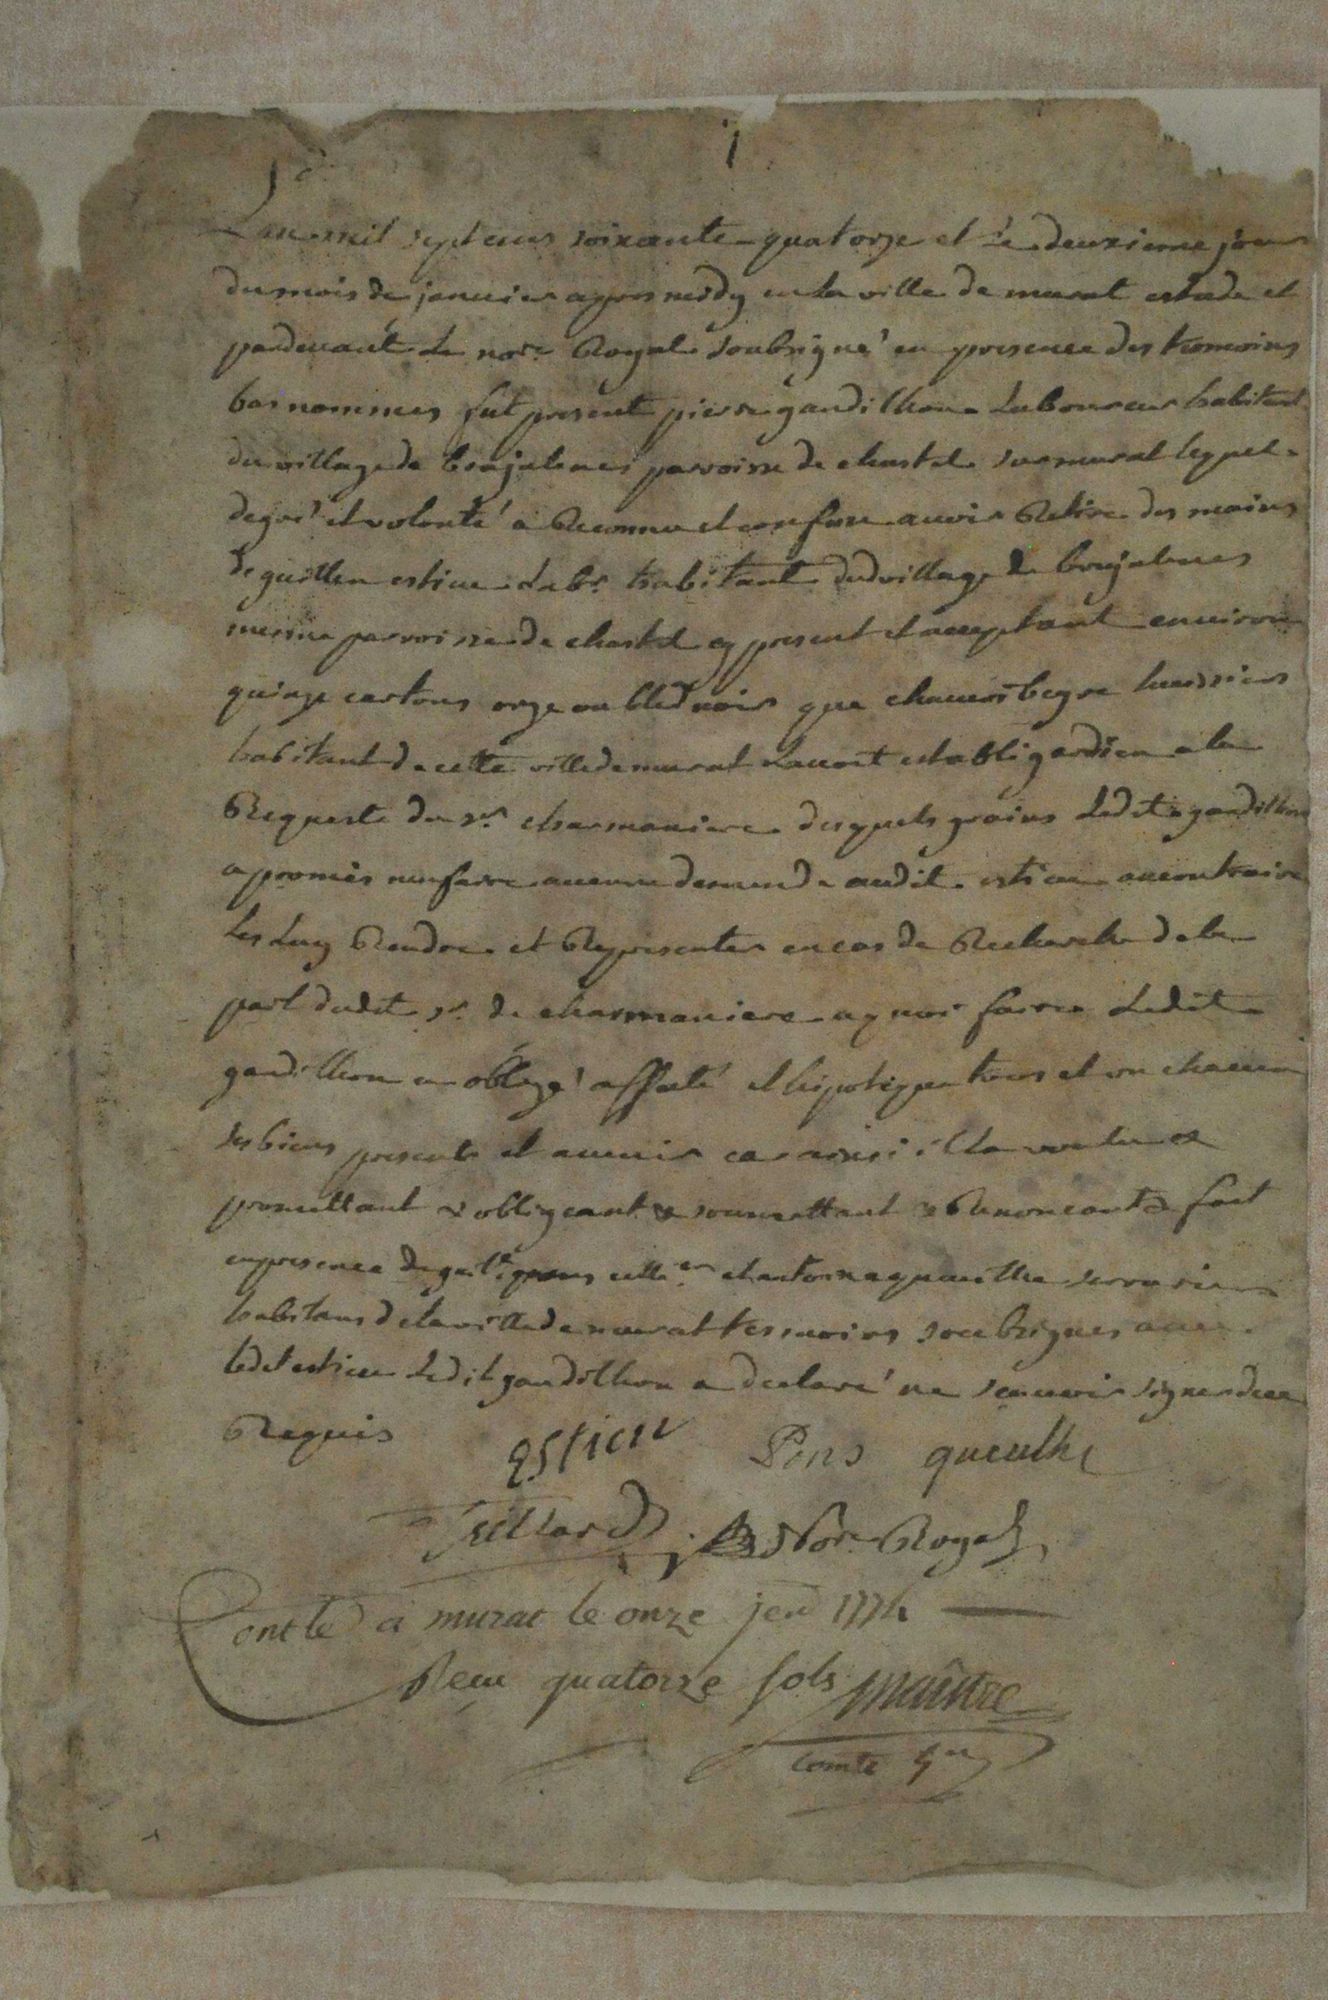 1
Lan mil sept cens soixante quatorze et le deuxieme jour
du mois de janvier apres midy en la ville de murat estude et
pardevant le nore Royal soubsigné en presence des temoins
bas nommes fut present pierre gandilhon laboureur habitant
du village de paroisse de chastel sur murat lequel
de gré et volonté a Reconnu et confesse avoir Retire des mains
de estieu labr habitant dud village de
mesme parroisse de chastel cy present et acceptant environ
quinze cartons orge ou bled noir que huissier
habitant de cette ville de murat lavoit establi gardien a la
Requeste du sr charmaniere desquels grains ledit gandilhon
a promis nen faire aucune demende audit estieu au contraire
les luy Rendre et Representer en cas de Recherche de la
part dudit sr de charmaniere a quoi faire ledit
gandilhon a obligé affecté et hipotequé tous et un chacun
ses biens presents et avenir car ainsi il la voulu &
promettant & obligeant & soumettant & Renoncant & fait
en presence de pons et antoine queuilhe serrurier
habitans de la ville de murat tesmoins soubsignes avec
ledit estieu ledit gandilhon a declaré ne scavoir signer de ce
Requis
Estieu Pons queuilhe
Teillard Nore Royal
Contlé a murat le onze jer 1774
Receu quatorze sols maîttre
comte